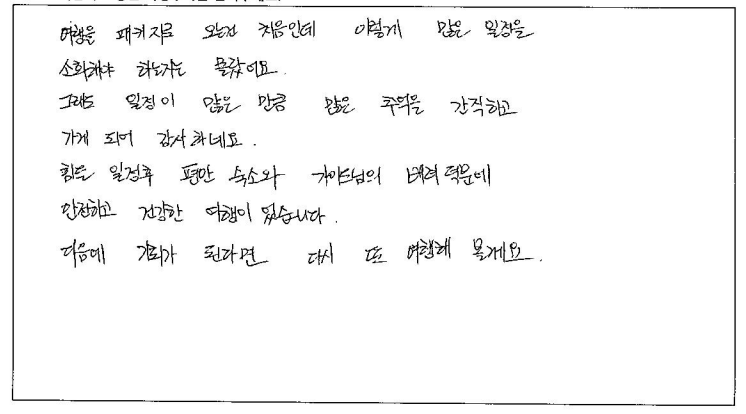 여행을 패키지로 오는건 처음인데 이렇게 많은 일정을
소화해야 하는지는 몰랐어요.
그래도 일정이 많은 만큼 많은 추억을 간직하고
가게 되어 감사하네요.
힘든 일정후 편안 숙소와 가이드님의 배려 덕분에
안전하고 건강한 여행이 었습니다.
다음에 기회가 된다면 다시 또 여행해 볼게요.